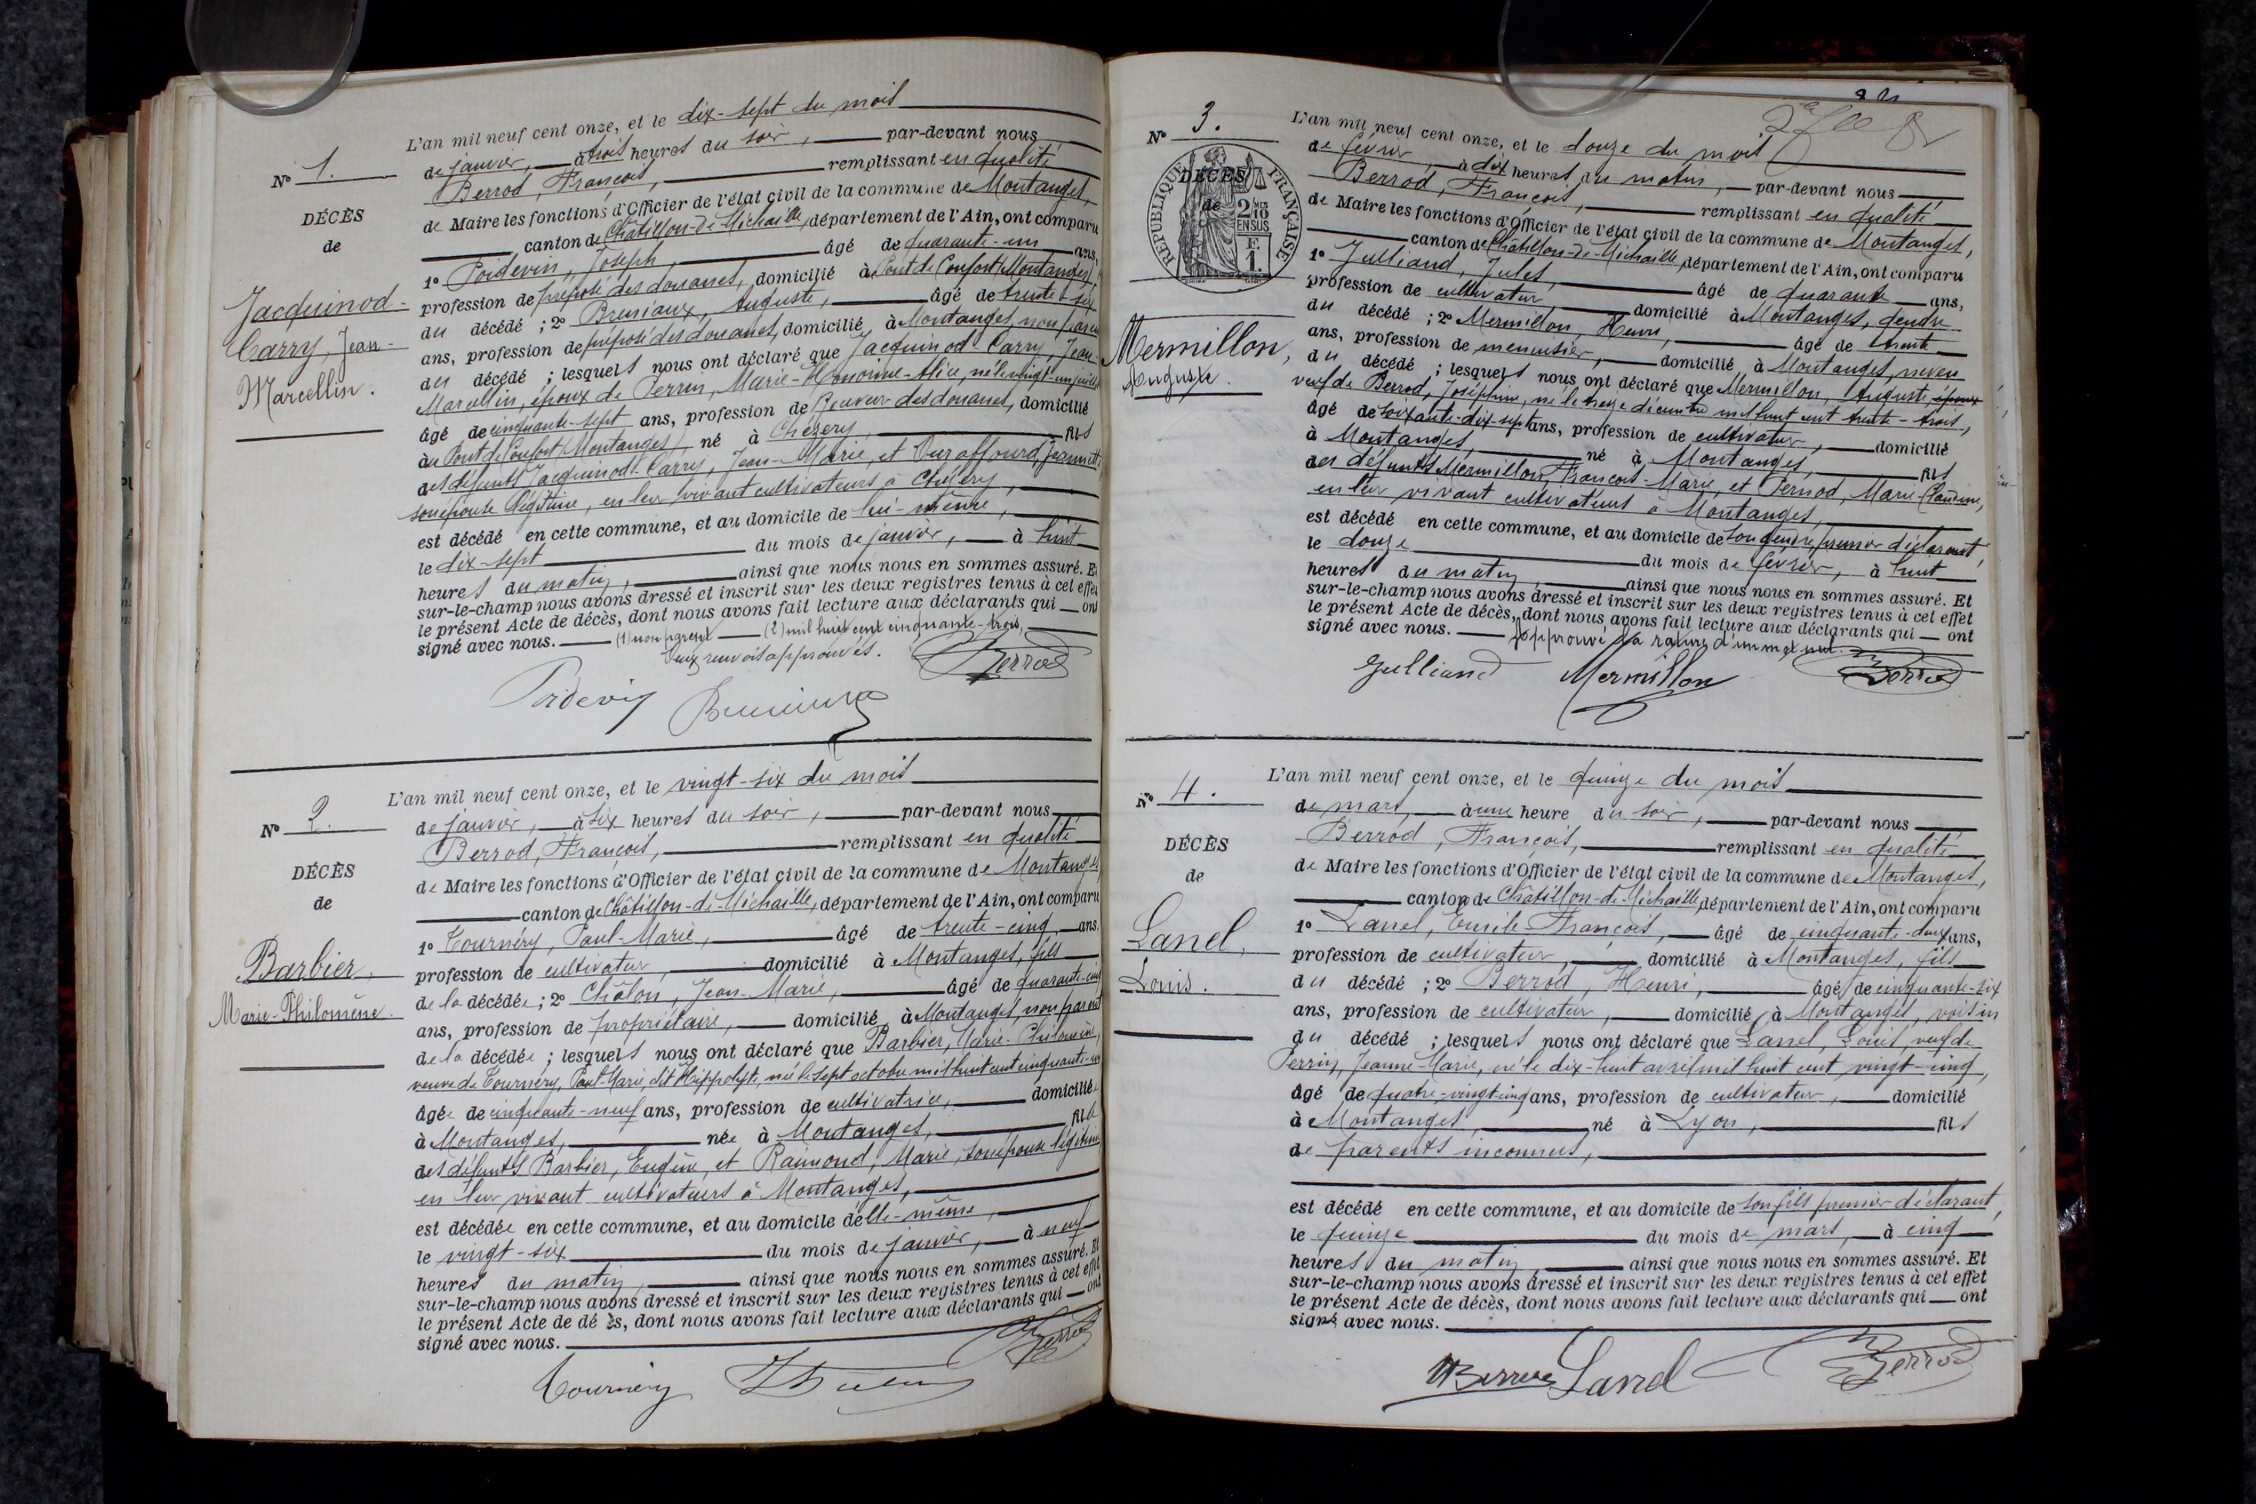 N° 1.
DÉCÈS
de
Jacquinod-
Carry, Jean-
Marcellin.
L'an mil neuf cent onze, et le dix-sept du mois
de janvier, à trois heures du soir, par-devant nous
Berrod, François, remplissant en qualité
de Maire les fonctions d'Officier de l'état civil de la commune de Montanges,
canton de Châtillon-de-Michaille, département de l'Ain, ont comparu
1° Poidevin, Joseph, âgé de quarante-un ans,
profession de préposé des douanes, domicilié à Pont de Confort (Montanges),
du décédé ; 2° Auguste, âgé de trente-six
ans, profession de préposé des douanes, domicilié à Montanges, non parent
du décédé ; lesquels nous ont déclaré que Jacquinod-Carry, Jean-
Marcellin, époux de Perrin, Marie-Honorine-Alice, né le vingt-un juillet
âgé de cinquante-sept ans, profession de Receveur des douanes, domicilié
au Pont de Confort (Montanges), né à Chézery, fils
des défunts Jacquinod-Carry, Jean-Marie, et Duraffourd, Jeannette,
son épouse légitime, en leur vivant cultivateurs à Chézery,
est décédé en cette commune, et au domicile de lui-même,
le dix-sept du mois de janvier, à huit
heures du matin, ainsi que nous nous en sommes assuré. Et
sur-le-champ nous avons dressé et inscrit sur les deux registres tenus à cet effet
le présent Acte de décès, dont nous avons fait lecture aux déclarants qui ont
signé avec nous. (1) non parent (2) mil huit cent cinquante-trois,
Deux renvois approuvés. Berrod
Poidevin
N° 2.
DÉCÈS
de
Barbier,
Marie-Philomène.
L'an mil neuf cent onze, et le vingt-six du mois
de janvier, à six heures du soir, par-devant nous
Berrod, François, remplissant en qualité
de Maire les fonctions d'Officier de l'état civil de la commune de Montanges,
canton de Châtillon-de-Michaille, département de l'Ain, ont comparu
1° Tournéry, Paul-Marie, âgé de trente-cinq ans.
profession de cultivateur, domicilié à Montanges, fils
de la décédée ; 2° Châlon, Jean-Marie, âgé de quarante-cinq
ans, profession de propriétaire, domicilié à Montanges, non parent
de la décédée ; lesquels nous ont déclaré que Barbier, Marie-Philomène,
veuve de Tournéry, Paul-Marie, dit Hippolyte, née le sept octobre mil huit cent cinquante-un
âgée de cinquante-neuf ans, profession de cultivatrice, domiciliée
à Montanges, née à Montanges, fille
des défunts Barbier, Eugène, et Raimond, Marie, son épouse légitime
en leur vivant cultivateurs à Montanges,
est décédée en cette commune, et au domicile d'elle-même,
le vingt-six du mois de janvier, à neuf
heures du matin, ainsi que nous nous en sommes assuré. Et
sur-le-champ nous avons dressé et inscrit sur les deux registres tenus à cet effet
le présent Acte de dé ès, dont nous avons fait lecture aux déclarants qui ont
signé avec nous.
Tournéry Berrod
N° 3.
RÉPUBLIQUE FRANÇAISE
DÉCÈS
de
2/10 EN SUS
F.
1.
Mermillon,
Auguste.
L'an mil neuf cent onze, et le douze du mois
de février, à dix heures du matin, par-devant nous
Berrod, François, remplissant en qualité
de Maire les fonctions d'Officier de l'état civil de la commune de Montanges,
canton de Châtillon-de-Michaille, département de l'Ain, ont comparu
1° Julliand, Jules, âgé de quarante ans,
profession de cultivateur, domicilié à Montanges, gendre
du décédé ; 2° Mermillon, Henri, âgé de trente
ans, profession de menuisier, domicilié à Montanges, neveu
du décédé ; lesquels nous ont déclaré que Mermillon, Auguste époux
veuf de Berrod, Joséphine, né le treize décembre mil huit cent trente-trois,
âgé de soixante-dix-sept ans, profession de cultivateur, domicilié
à Montanges, né à Montanges, fils
des défunts Mermillon, François-Marie, et Pernod, Marie-Claudine,
en leur vivant cultivateurs à Montanges,
est décédé en cette commune, et au domicile de son gendre premier déclarant,
le douze du mois de février, à huit
heures du matin, ainsi que nous nous en sommes assuré. Et
sur-le-champ nous avons dressé et inscrit sur les deux registres tenus à cet effet
le présent Acte de décès, dont nous avons fait lecture aux déclarants qui ont
signé avec nous. Approuvé la rature d'un mot nul.
Julliand Mermillon Berrod
N° 4.
DÉCÈS
de
Lanel,
Louis.
L'an mil neuf cent onze, et le quinze du mois
de mars, à une heure du soir, par-devant nous
Berrod, François, remplissant en qualité
de Maire les fonctions d'Officier de l'état civil de la commune de Montanges,
canton de Châtillon-de-Michaille, département de l'Ain, ont comparu
1° Lanel, Emile-François, âgé de cinquante-deux ans,
profession de cultivateur, domicilié à Montanges, fils
du décédé ; 2° Berrod, Henri, âgé de cinquante-six
ans, profession de cultivateur, domicilié à Montanges, voisin
du décédé ; lesquels nous ont déclaré que Lanel, Louis, veuf de
Perrin, Jeanne-Marie, né le dix-huit avril mil huit cent vingt-cinq,
âgé de quatre-vingt-cinq ans, profession de cultivateur, domicilié
à Montanges, né à Lyon, fils
de parents inconnus,
est décédé en cette commune, et au domicile de son fils premier déclarant,
le quinze du mois de mars, à cinq
heures du matin, ainsi que nous nous en sommes assuré. Et
sur-le-champ nous avons dressé et inscrit sur les deux registres tenus à cet effet
le présent Acte de décès, dont nous avons fait lecture aux déclarants qui ont
signé avec nous.
Lanel Berrod